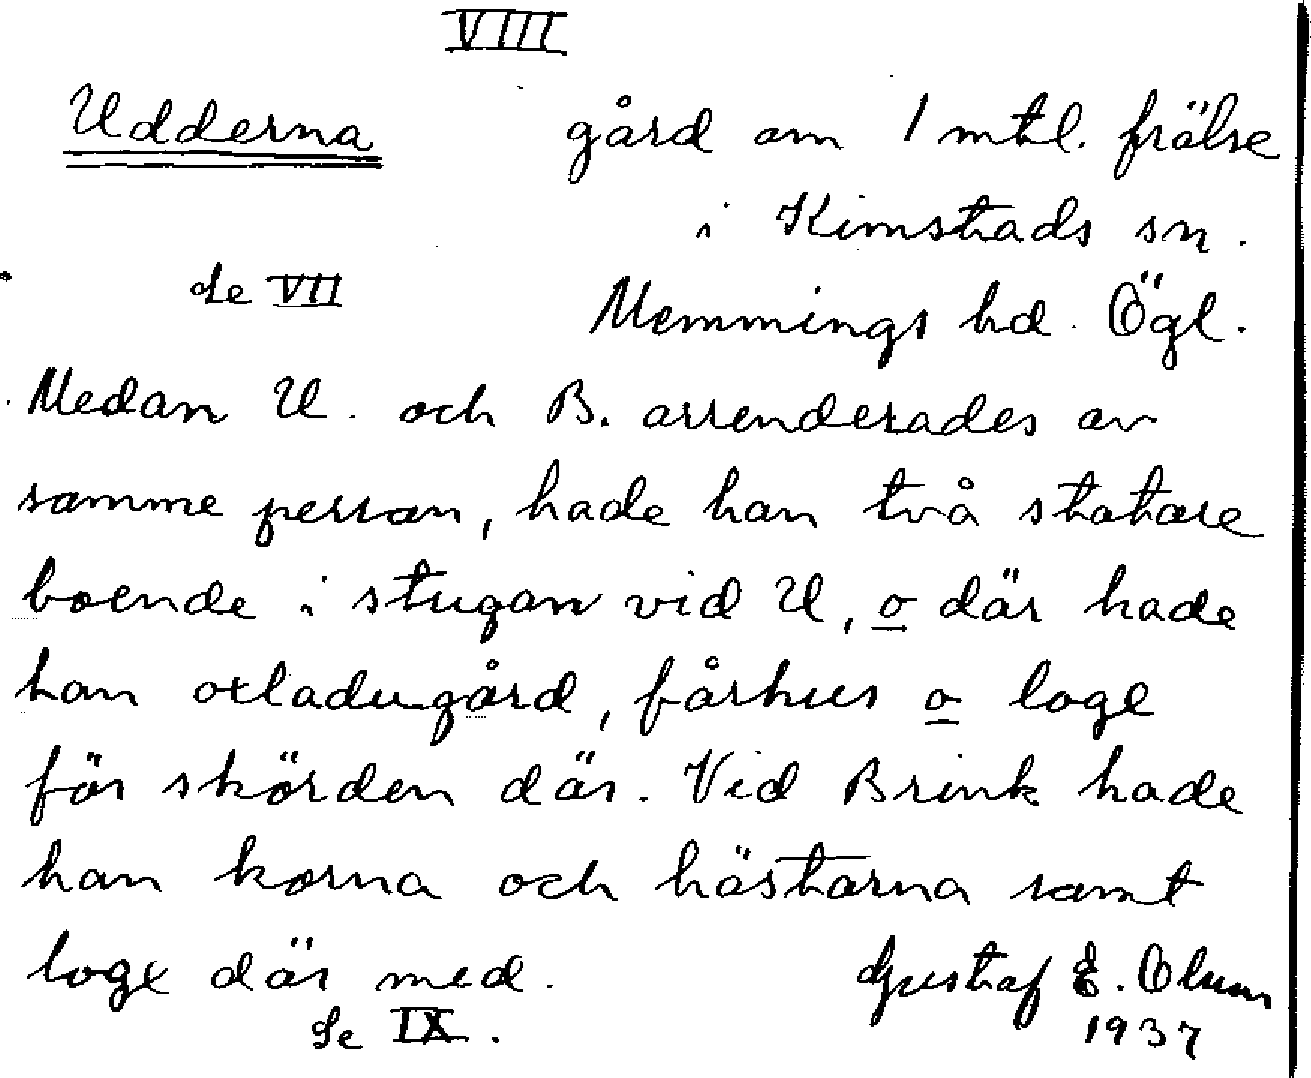 VIII
Udderna gård om 1 mtl. frälse
i Kimstads sn.
Se VII Memmings hd. Ögl.
Medan U. och B. arrenderades av
samme person, hade han två statare
boende i stugan vid U, o där hade
han oxladugård, fårhus o loge
för skörden där. Vid Brink hade
han korna och hästarna samt
loge där med. Gustaf E. Olson
Se IX. 1937